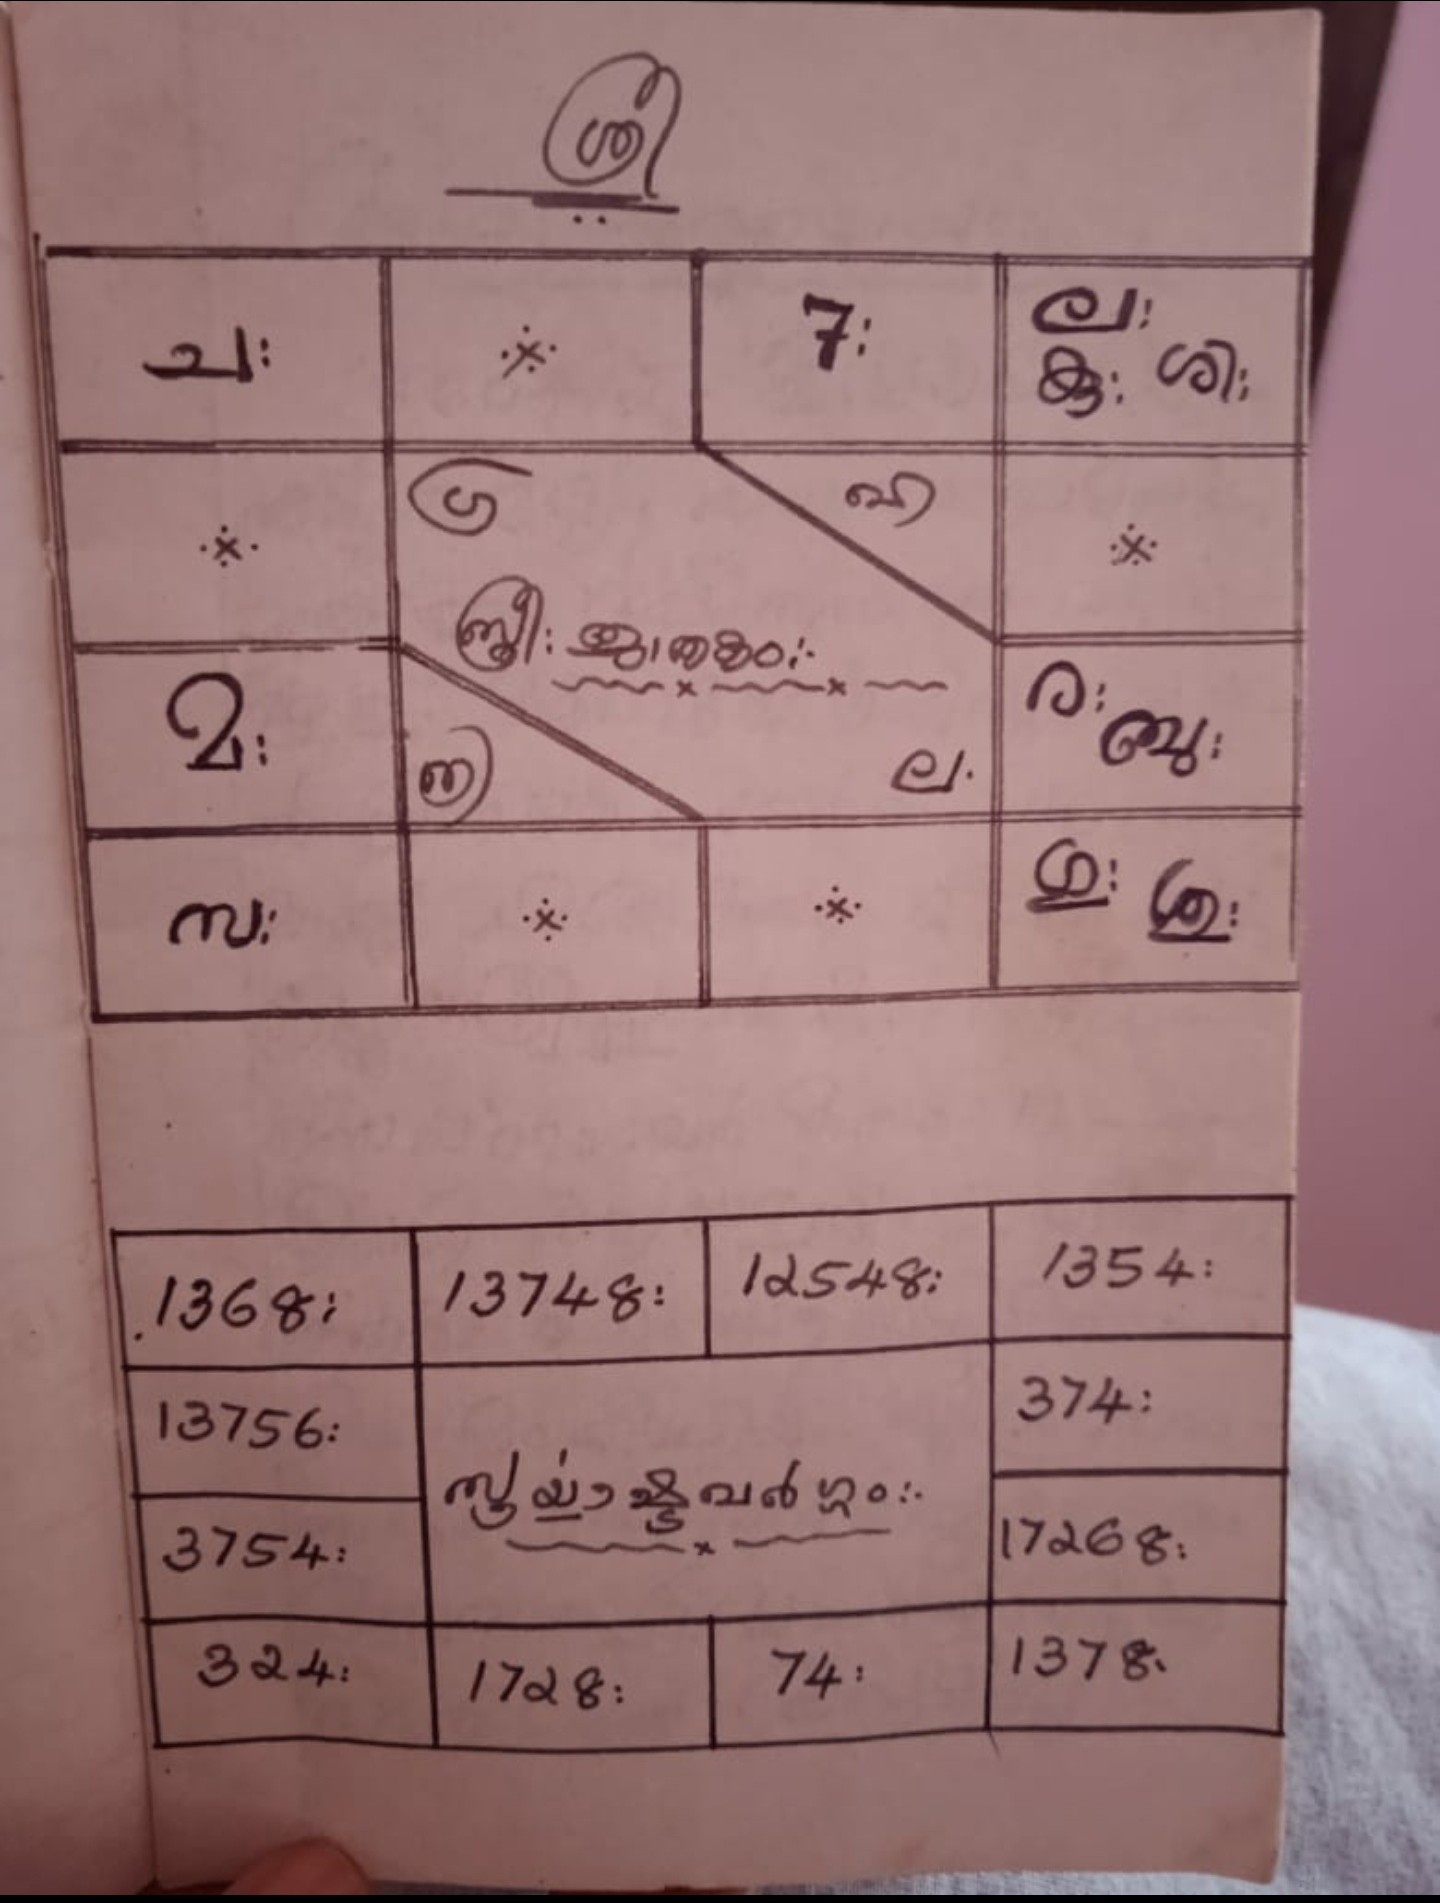 ശ്രീ
ചഃ
7:
ലഃ
കുഃ ശിഃ
ഗ്ര
ഹ
സ്ത്രീഃ ജാതകംഃ
മഃ
നി
ല.
രഃ
ബുഃ
സഃ
ഗുഃ ശുഃ
1368:
13748:
12548:
1354:
13756:
374:
സൂര്യാഷ്ടവർഗ്ഗംഃ
3754:
17268:
324:
1728:
74:
1378.